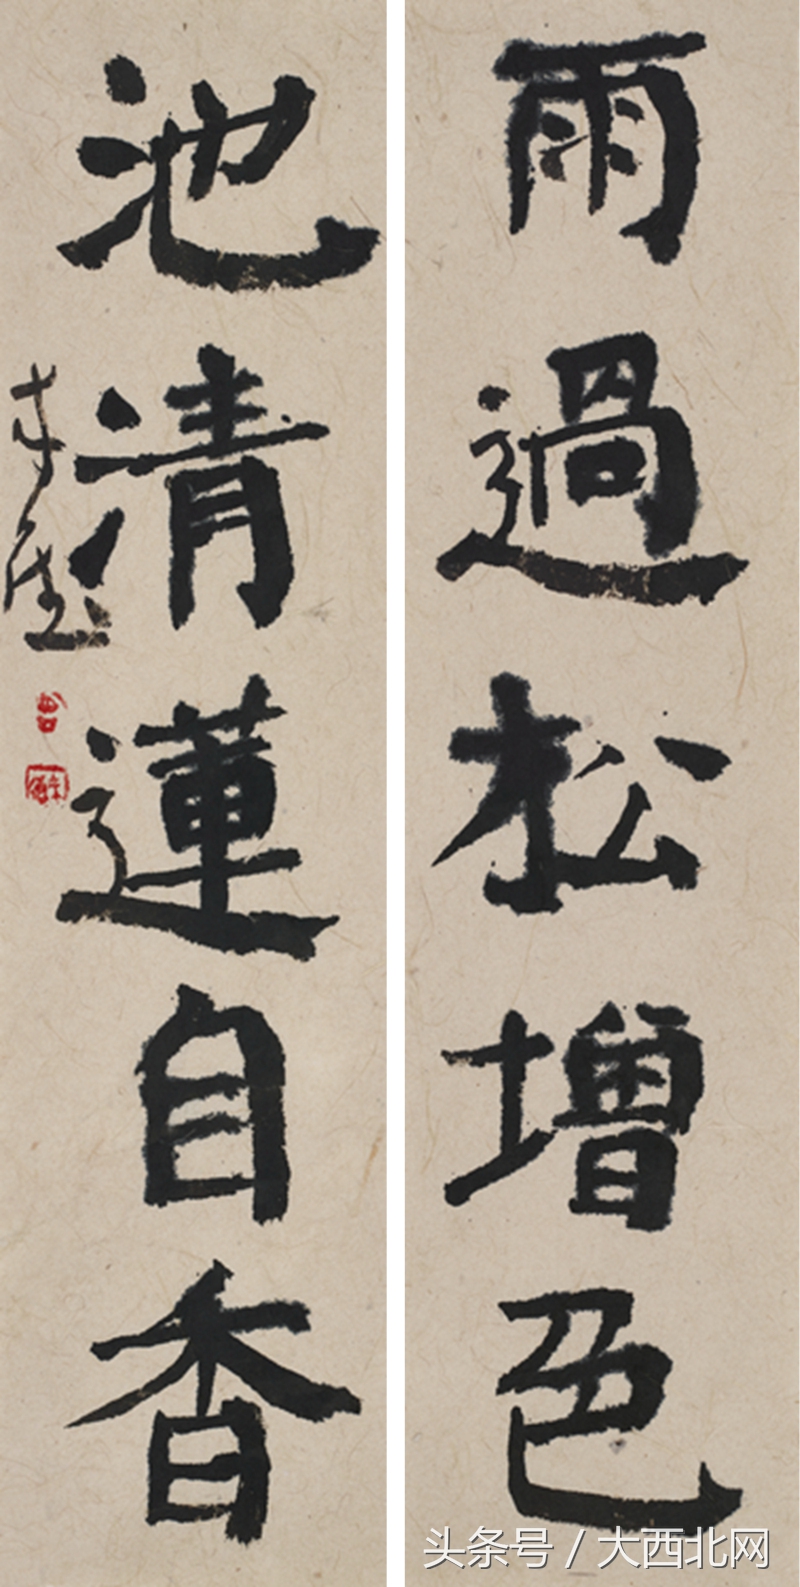 雨過松增色
池清蓮自香
头条号 / 大西北网